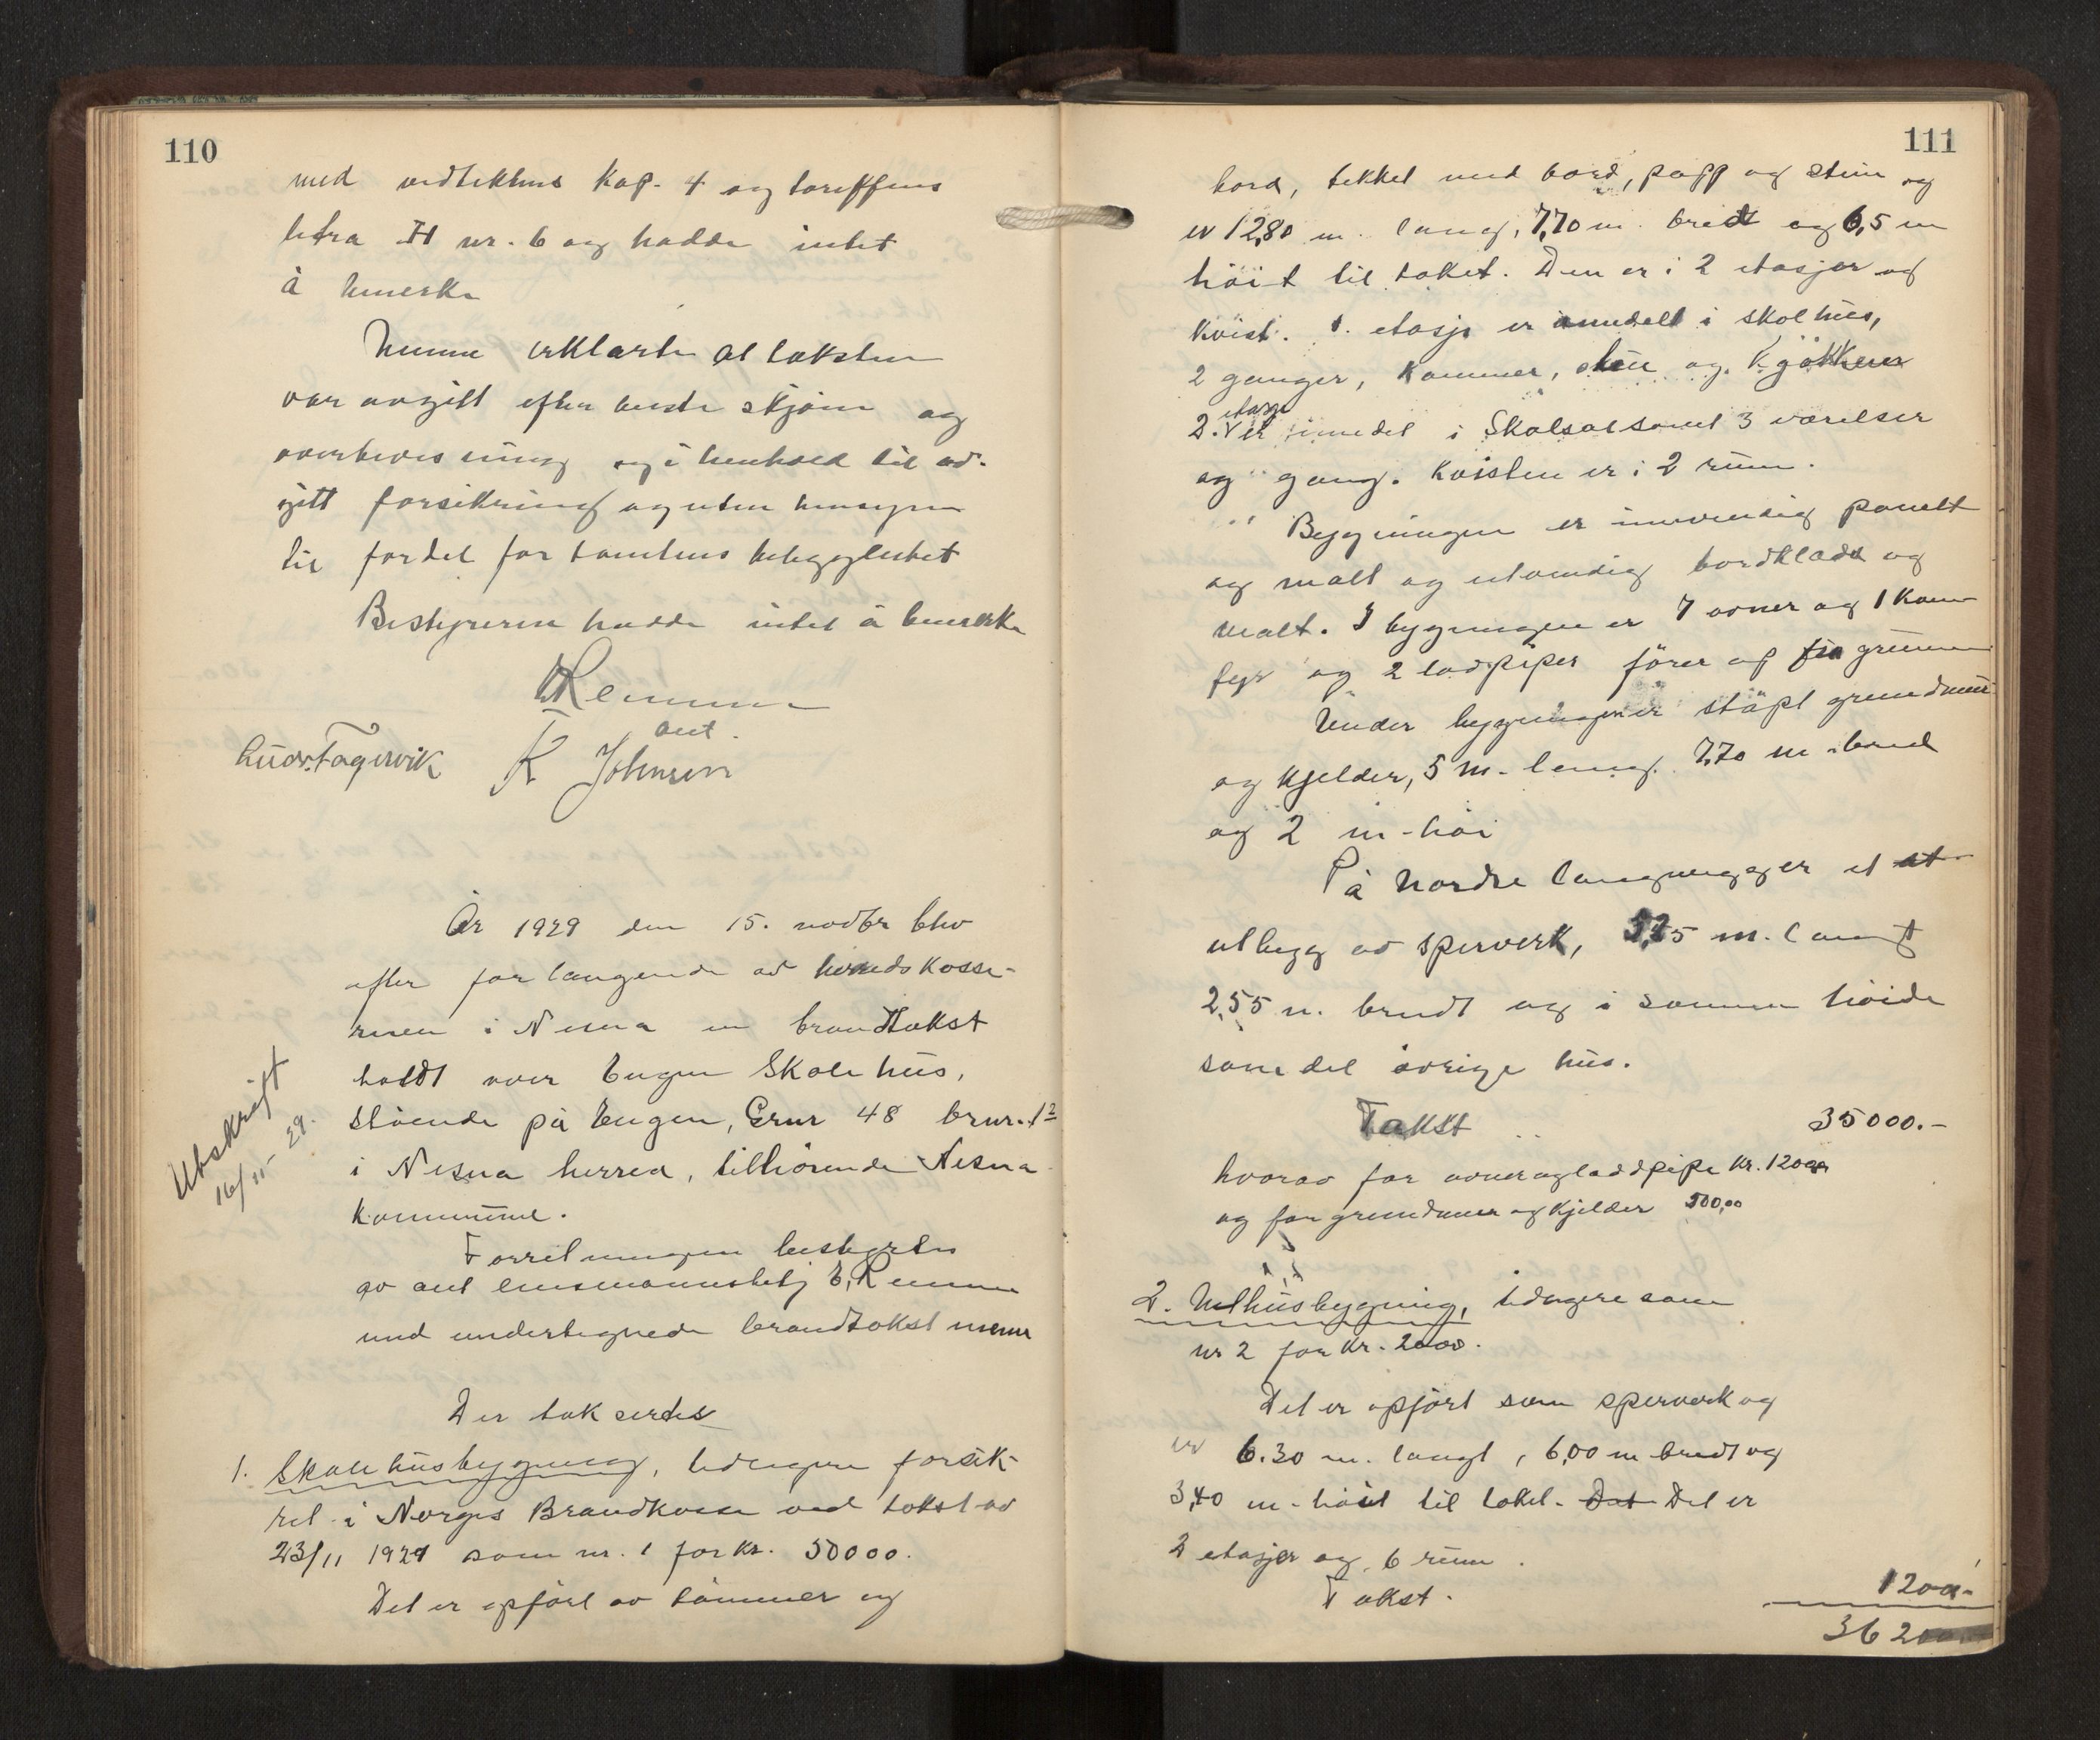 110
med vedtektens kap. 4 og tariffens
litra H nr. 6 og hadde intet
å bemerke
Mennene erklærte at taksten
var avgitt efter beste skjønn og
overbevisning og i henhold til ad-
gitt forsikring og uten hensyn
til fordel for tomtens beliggenhet
Bestyreren hadde intet å bemerke
Remmen
aut.
Ludv. Fagervik K Johnsen
År 1929 den 15. novbr blev
efter forlangende av herredskasse-
reren i Nesna en brandtakst
holdt over Engen Skolehus,
stående på Engen, Grnr 48 brnr. 12
i Nesna herred, tilhørende Nesna
kommune.
Utskrift
16/11-29.
Forretningen bestyrtes
av aut lensmannsbetj E, Remmen
med undertegnede brandtakstmenn
Der takserdes
1. Skolehusbygning, tidligere forsik-
ret i Norges Brandkasse ved takst av
23/11 1921 som nr. 1 for kr. 50000.
Det er opført av tømmer og
111
bord, tekket med bord, papp og sten og
er 12,80 m. lang, 7,70 m. bredt og 6,5 m
høit til taket. Den er i 2 etasjer og
kvist. 1. etasje er inndelt i skolhus,
2 ganger, kammer, stue og Kjøkken
etasje
2. er inndel i Skolsal samt 3 værelser
og gang. Kvisten er i 2 rum.
Bygningen er innvendig panelt
og malt og utvendig bordklædd og
malt. I bygningen er 7 ovner og 1 kom-
fyr og 2 ladpiper fører op fra grunnen
Under bygningen er støpt grundmur
og kjelder, 5 m. lang. 7,70 m bred
og 2 m høi
På nordre langvegg er et et
utbygg av sperverk, 5,25 m. langt
2,55 m. bredt og i samme høide
som det øvrige hus.
Takst 35000.-
hvorav for ovner og laddpipe kr. 1200,00
og for grundmur og kjelder 500,00
2. Uthusbygning, tidligere som
nr 2 for kr. 2000.
Det er opført som sperverk og
er 6.30 m. langt, 6,00 m bredt og
3,40 m. høit til taket. Det Det er
2 etasjer og 6 rum.
Takst. 1200.-
36200